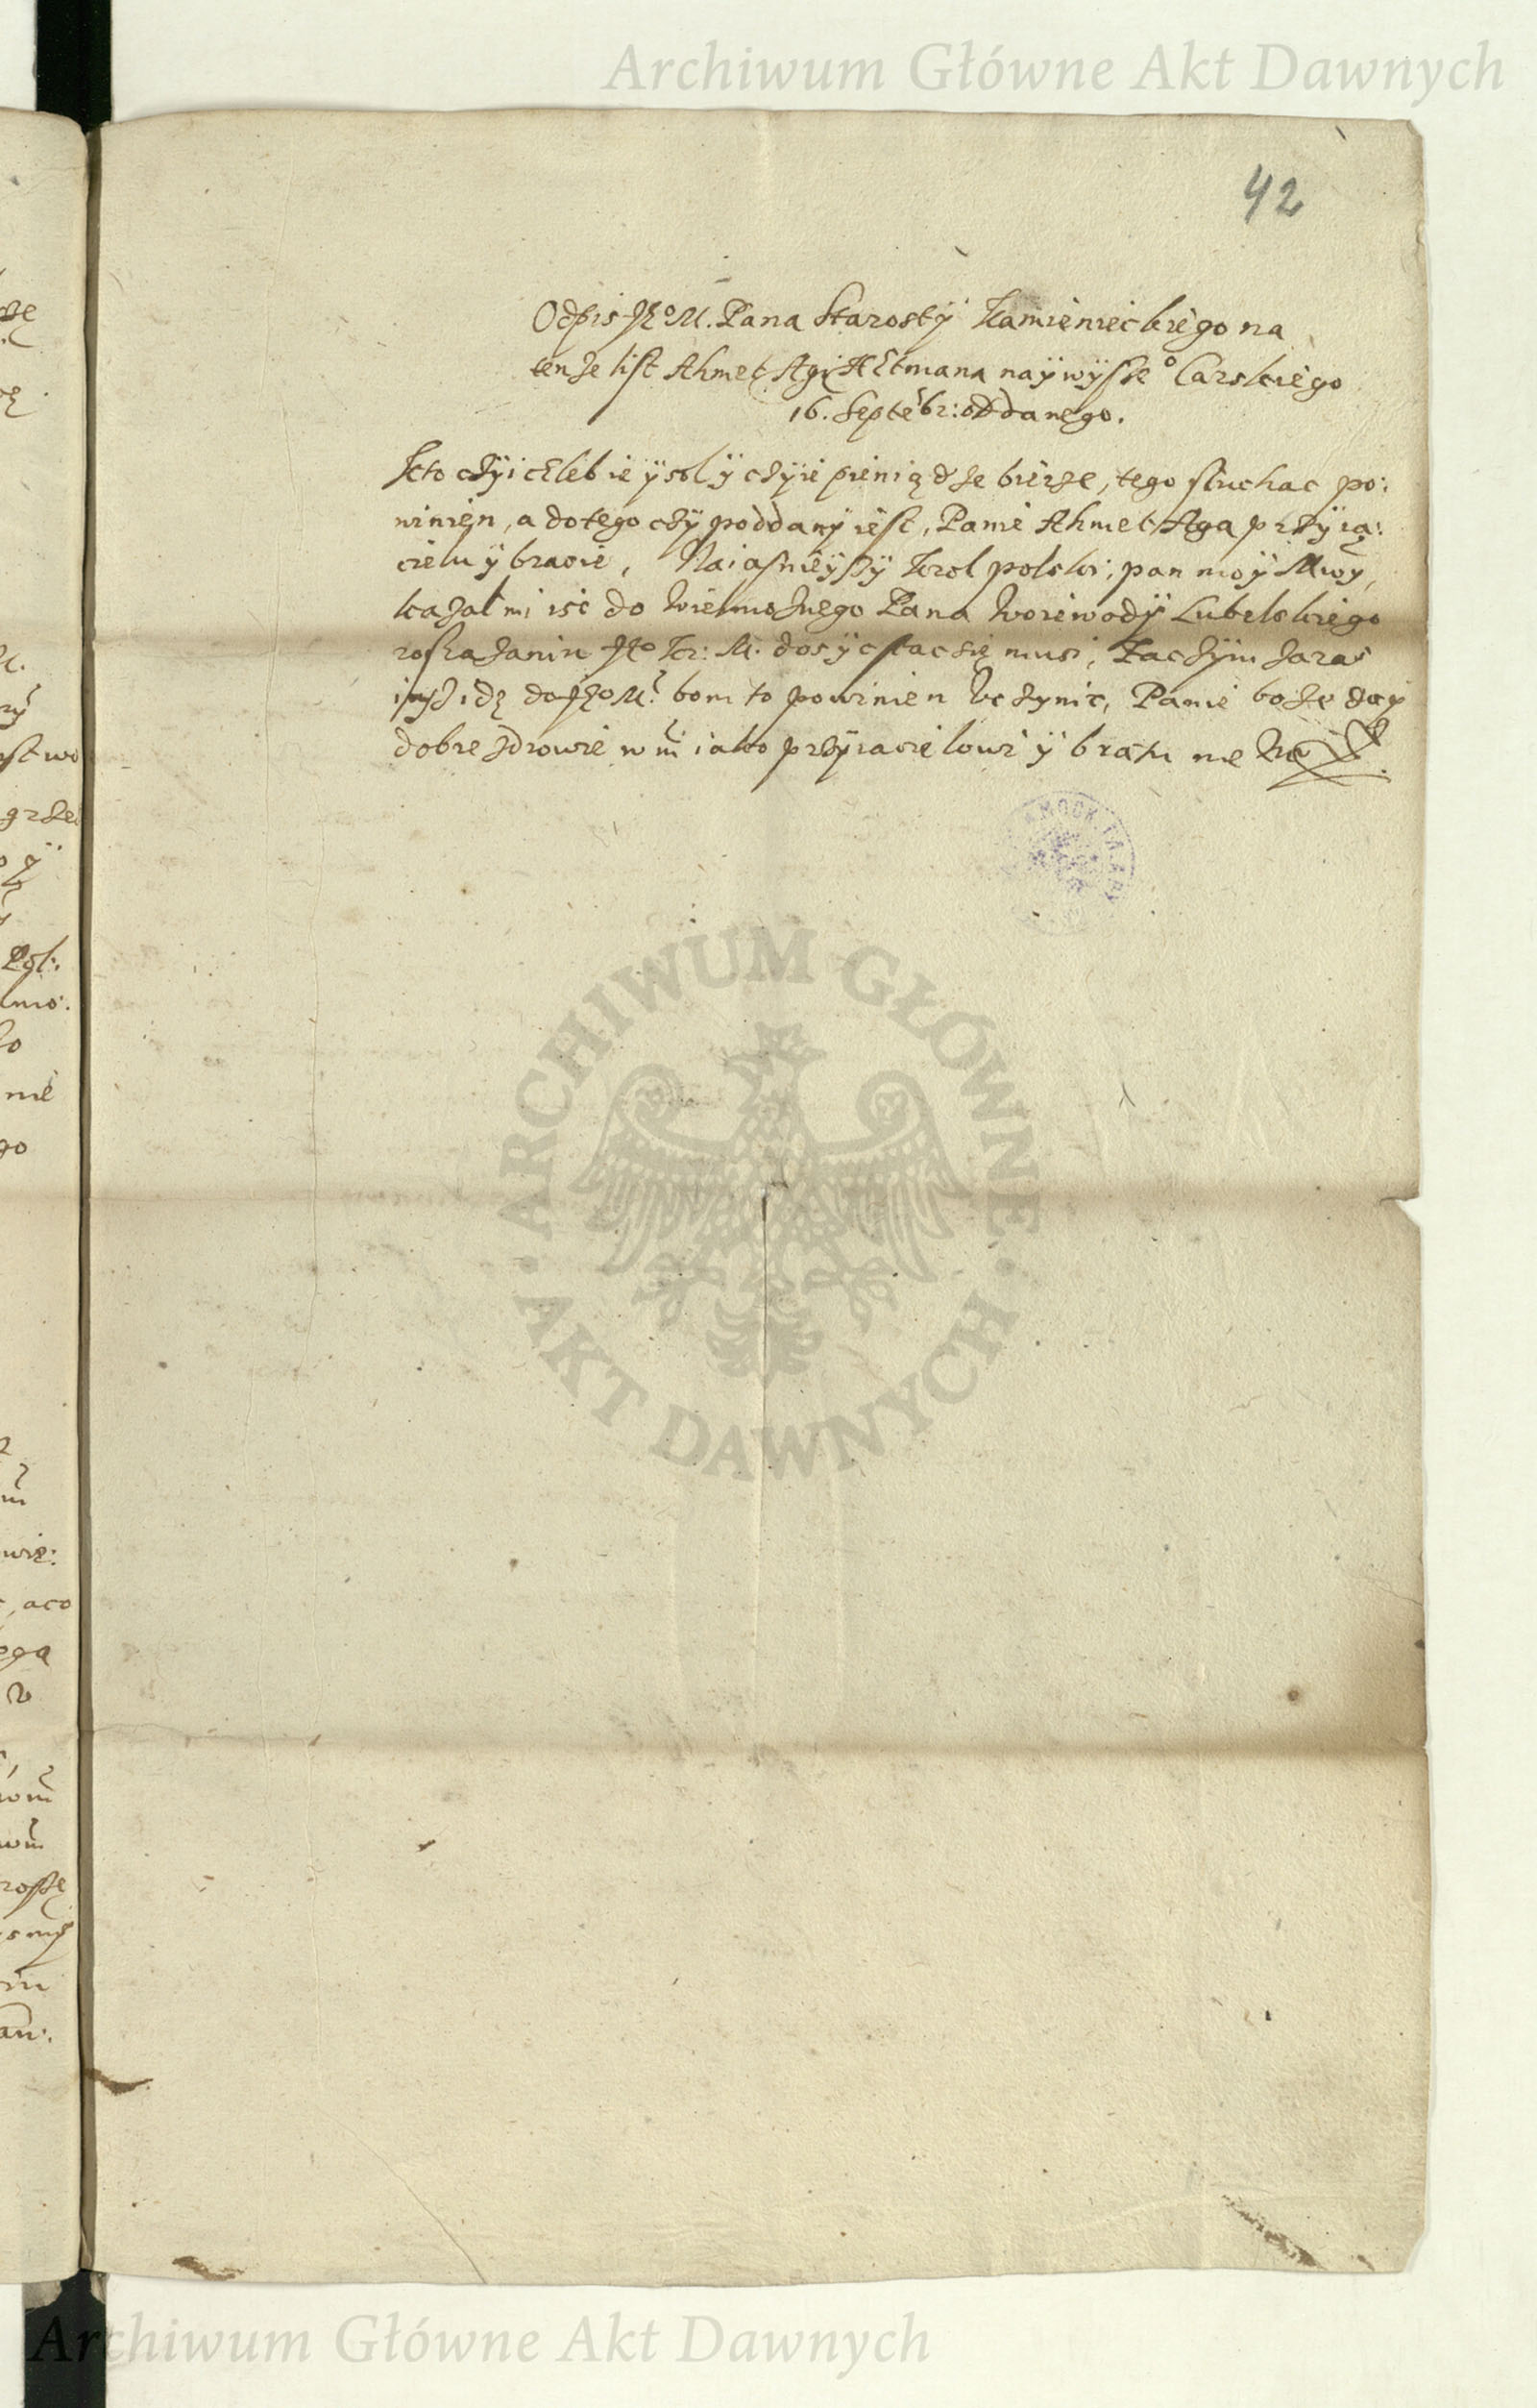 Archiwum Główne Akt Dawnych
42
Odpis Jego M. Pana Starosty Kamienieckiego na
tenże list Ahmet Agi Hetmana naÿwÿsze° Carskiego
16. Septebr: oddanego.
Kto cżÿi chleb ie ÿ sol ÿ cżÿie pieniądże bierże, tego słuchac po:
winien, a do tego cżÿ poddany iest, Panie Ahmet Aga prżÿia:
cielu ÿ bracie, Naiasnieÿszÿ Krol polski, pan moÿ Mwÿ,
każał mi isc do Wielmożnego Pana Woiewodÿ Lubelskiego
roskażaniu Je° Kr: M. dosÿc stac się musi, Zacżÿm żaraż
idę do Je° M. bom to powinien Vcżynic, Panie boże daÿ
dobre żdrowie wm iako prżÿiacielowi ÿ bratu
ARCHIWUM GŁÓWNE
· AKT DAWNYCH ·
Archiwum Główne Akt Dawnych